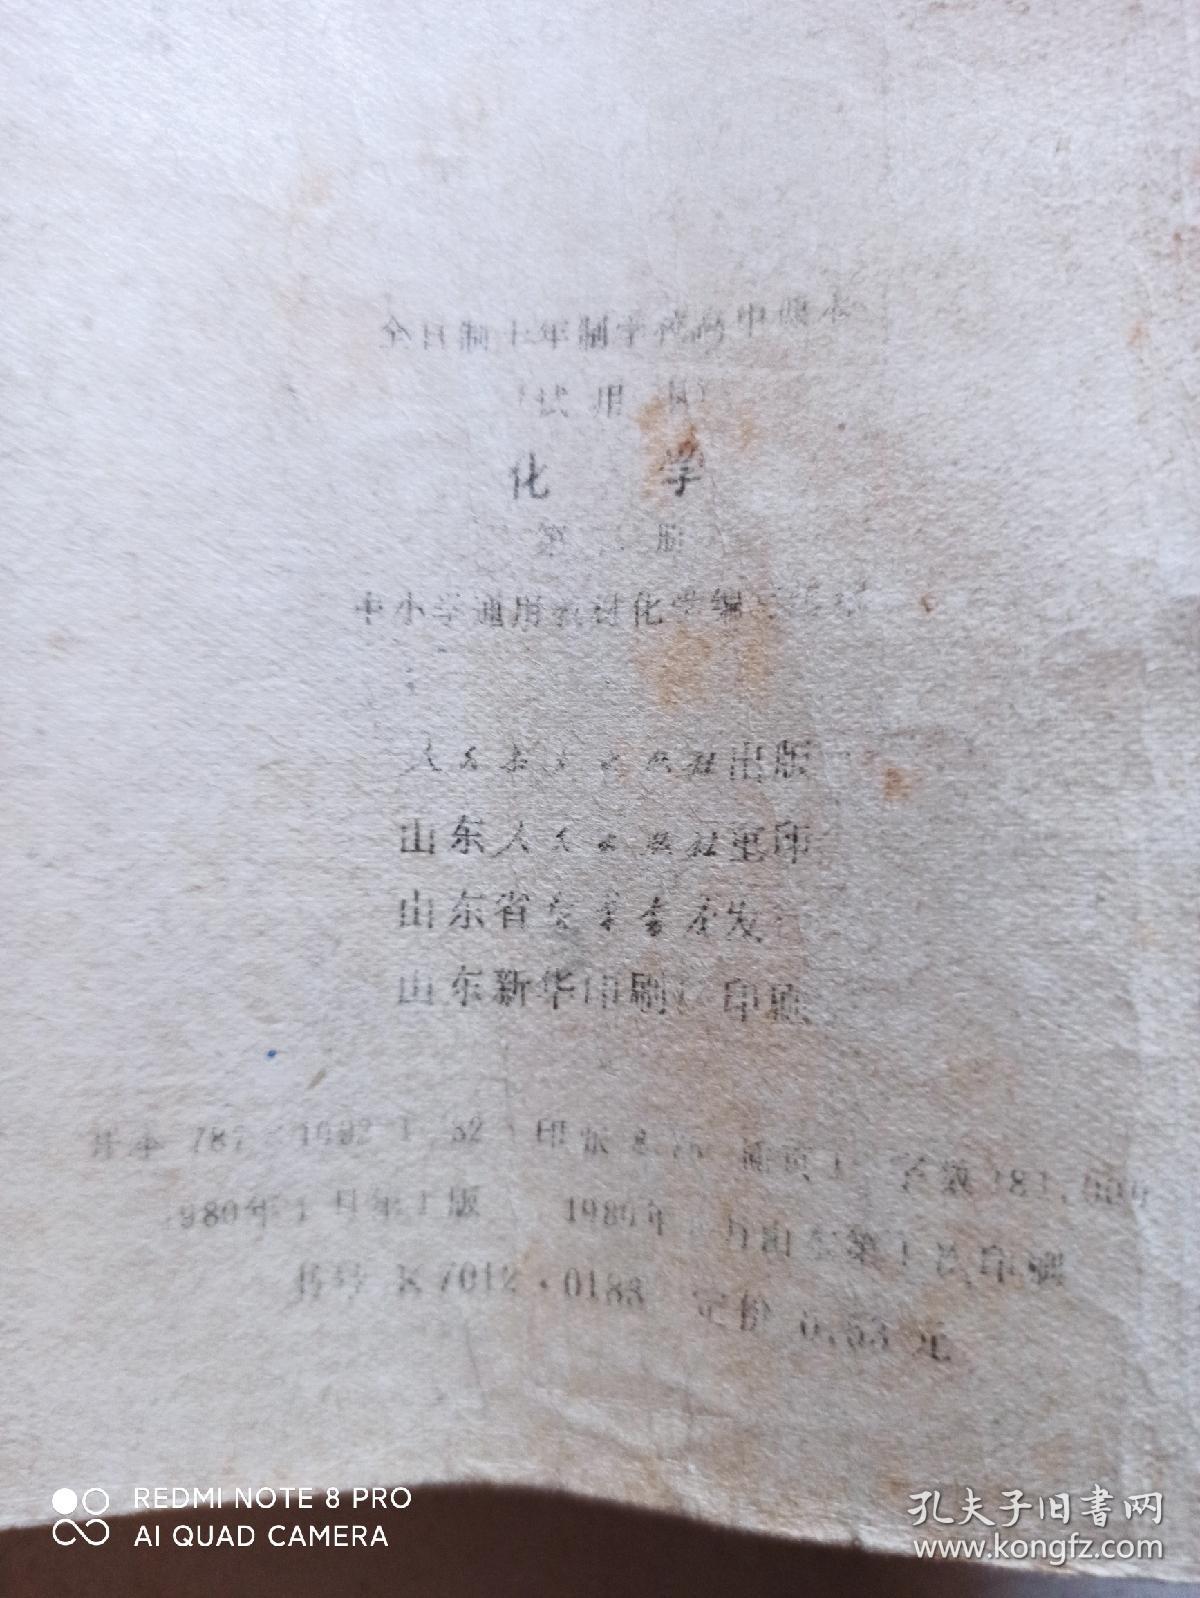 全日制十年制学校高中课本
(试用本)
化 学
第 册
中小学通用教材化学编写组编
人民教育出版社出版
山东人民出版社重印
山东省新华书店发
山东新华印刷厂印刷
开本 787×1092 1/32 印张 8.75 插页 1 字数 181,000
1980年1月第1版 1980年 月山东第1次印刷
书号 K7012·0183 定价 0.53 元
REDMI NOTE 8 PRO
AI QUAD CAMERA
孔夫子旧書网
www.kongfz.com